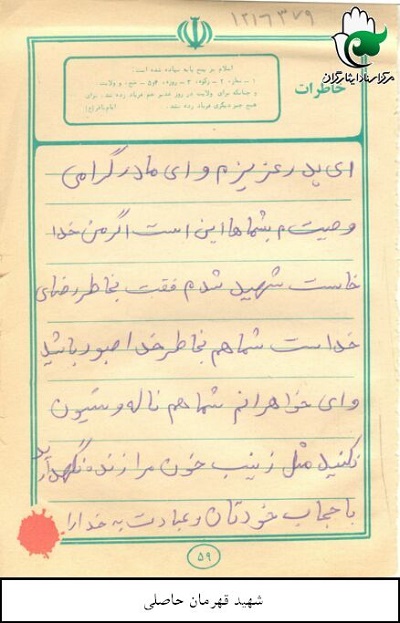 ۱۲۱۶۳۷۹
مرکز اسناد ایثارگران
خاطرات
اسلام بر پنج پایه نهاده شده است:
۱ – نماز، ۲ – زکوة، ۳ – روزه، ۴ – حج، ۵ – ولایت.
و چنانکه برای ولایت در روز غدیر خم فریاد زده شد، برای
هیچ چیز دیگری فریاد زده نشد.
ای پدر عزیزم و ای مادر گرامی
وصیت م بشماها این است اگر من خدا
خاست شهید شدم فقت بخاطر رضای
خداست شما هم بخاطر خدا صبور باشید
و ای خواهرانم شما هم ناله و شیون
نکنید مثل زینب خون مرا زنده نگهدارید
با حجاب خودتان و عبادت به خدارا
۵۹
شهید قهرمان حاصلی